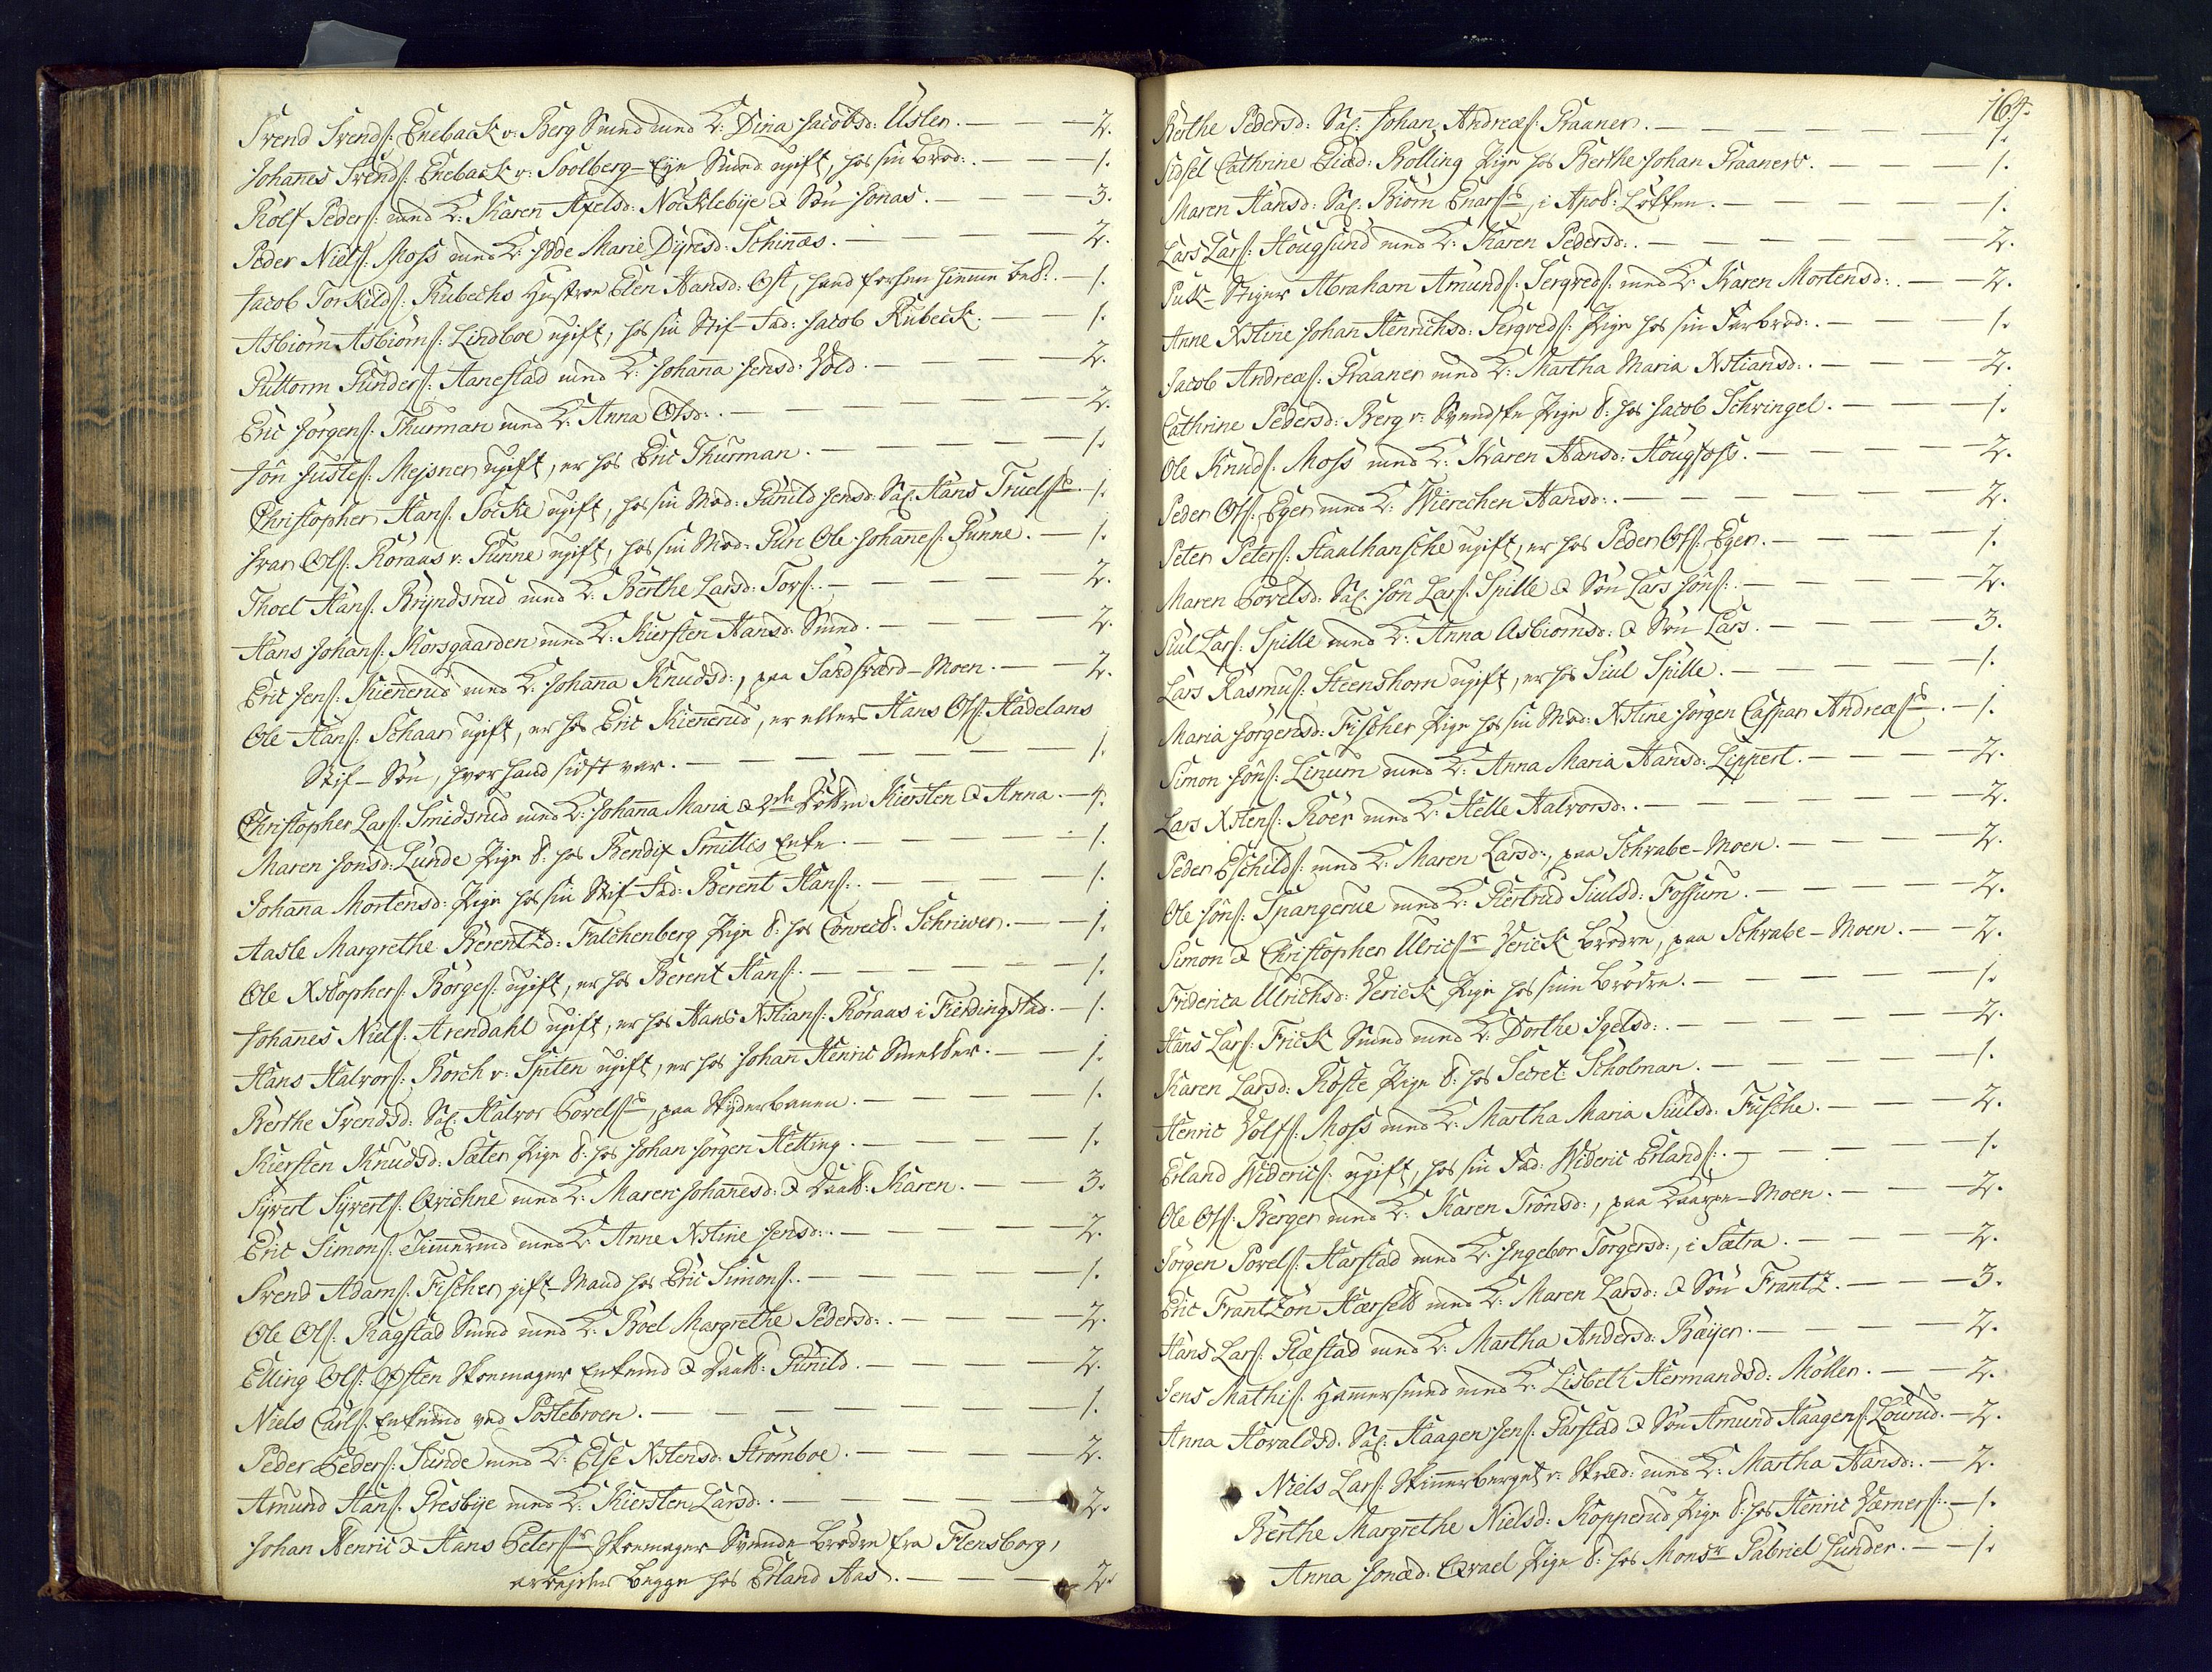 Svend Svends: Eneback v: Berg Smed med K: Dina Jacobsd: Uslen. — — — 2.
Johañes Svends: Eneback v: Soolberg-Eye Smed ugift, hos sin Brod: . — — 1.
Rolf Peders: med K: Karen Axelsd: Nöcklebye & Sön Jonas. — — — 3.
Peder Niels: Moss med K: Jdde Marie Dyresd: Schiñæs. — — — 2.
Jacob Torkilds: Rubechs Hustroe Elen Hansd: Ost, hand forhen hiemme bes: — 1.
Asbiörn Asbiörns: Lindboe ugift, hos sin Stif-Fad: Jacob Rubeck. — — 1.
Guttorm Gunders: Aanestad med K: Johaña Jensd: Vold. — — — 2.
Eric Jörgens: Thurman med K: Anna Olsd: . — — — — 2.
Jön Justes: Mejsner ugift, er hos Eric Thurman. — — — — 1.
Christopher Hans: Socke ugift, hos sin Mod: Guñild Jensd: Sal: Hans Truelss. — 1.
Jvar Ols: Röraas v: Gunne ugift, hos sin Mod: Guri Ole Johañes: Gunne. — 1.
Thoel Hans: Bryndsrud med K: Berthe Larsd: Tors: . — — — 2.
Hans Johans: Korsgaarden med K: Kiersten Hansd: Smed. — — — 2.
Eric Jens: Kieñerud med K: Johaña Knudsd:, paa Sandsværd-Moen. — — 2.
Ole Hans: Schaar ugift, er hos Eric Kieñerud, er ellers Hans Ols: Hadelans
Stif-Sön, hvor hand sidst var. — — — — — 1.
Christopher Lars: Smidsrud med K: Johaña Maria & 2de Döttre Kiersten & Anna. — 4.
Maren Jonsd: Lunde Pige t: hos Bendix Smittis Enke. — — — 1.
Johaña Mortensd: Pige hos sin Stif-Fad: Berent Hans: . — — — 1.
Aasle Margrethe Berentzd: Falchenberg Pige t: hos Conrect: Schriwer. — — 1.
Ole Xstophers: Börges: ugift, er hos Berent Hans: . — — — 1.
Johañes Niels: Arendahl ugift, er hos Hans Xstians: Röraas i Fierdingstad. — 1.
Hans Halvors: Borch v: Spiten ugift, er hos Johañ Henric Smelter. — — 1.
Berthe Svendsd: Sal: Halvor Povelss, paa Skyderbanen. — — — 1.
Kiersten Knudsd: Sæter Pige t: hos Johan Jörgen Hetting. — — — 1.
Syvert Syverts: Qvichne med K: Maren Johañesd: & Daatt: Karen. — — 3.
Eric Simons: Timmermd med K: Anne Xstine Jensd: . — — — 2.
Svend Adams: Fischer gift-Mand hos Eric Simons: . — — — 1.
Ole Ols: Ragstad Smed med K: Boel Margrethe Pedersd: . — — — 2.
Elling Ols: Østen Skoemager Enkemd & Daatt: Guñild. — — — 2.
Niels Carls: Enkemd ved Postebroen. — — — — 1.
Peder Peders: Sunde med K: Else Xstensd: Strömboe. — — — 2.
Amund Hans: Presbye med K: Kiersten Larsd: . — — — 2.
Johan Henric & Hans Peterss Skoemager-Svende-Brödre fra Flensborg,
arbejder begge hos Erland Aas. — — — 2.
164.
Berthe Pedersd: Sal: Johan Andreæs: Graaner. — — — — 1.
Sidsel Cathrine Eliæd: Bolling Pige hos Berthe Johan Graaners. — — 1.
Maren Hansd: Sal: Biörn Enarss, i Apot: Lökken. — — — 1.
Lars Lars: Hougsund med K: Karen Pedersd: . — — — — 2.
Puk-Stiger Abraham Amunds: Sergreds: med K: Karen Mortensd: . — 2.
Anne Xstine Johan Henrichsd: Sergreds: Pige hos sin Farbrod: . — — 1.
Jacob Andreæs: Graaner med K: Martha Maria Xstiansd: . — — 2.
Cathrine Pedersd: Berg v: Svendske Pige t: hos Jacob Schvingel. — — 1.
Ole Knuds: Moss med K: Karen Hansd: Hougfoss. — — — 2.
Peder Ols: Eger med K: Wierechen Hansd: . — — — — 2.
Peter Peters: Staalhansche ugift, er hos Peder Ols: Eger. — — — 1.
Maren Povelsd: Sal: Jön Lars: Spille & Sön Lars Jöns: . — — — 2.
Siul Lars: Spille med K: Anna Asbiörnsd: & Sön Lars. — — — 3.
Lars Rasmus: Steenshorn ugift, er hos Siul Spille. — — — 1.
Maria Jörgensd: Fischer Pige hos sin Mod: Xstine Jörgen Caspar Andreæss. — 1.
Simon Jöns: Linum med K: Anna Maria Hansd: Lippert. — — — 2.
Lars Xstens: Röer med K: Helle Halvorsd: . — — — — 2.
Peder Eschilds: med K: Maren Larsd:, paa Schrabe-Moen. — — — 2.
Ole Jöns: Spangerue med K: Giertrud Siulsd: Fossum. — — — 2.
Simon & Christopher Ulricsr Verick Brödre, paa Schrabe-Moen. — — 2.
Friderica Ulrichsd: Verick Pige hos sine Brödre. — — — — 1.
Hans Lars: Frick Smed med K: Dorthe Igelsd: . — — — 2.
Karen Larsd: Röste Pige t: hos Secret: Scholman. — — — 1.
Henric Volfs: Moss med K: Martha Maria Siulsd: Fusche. — — 2.
Erland Widerics: ugift, hos sin Fad: Wideric Erlands: . — — — 1.
Ole Ols: Berger med K: Karen Trönsd:, paa Kaarpe-Moen. — — 2.
Jörgen Povels: Harstad med K: Ingebor Torgersd:, i Sætra. — — 2.
Eric Frantzön Hærsett med K: Maren Larsd: & Sön Frantz. — — 3.
Hans Lars: Flæstad med K: Martha Andersd: Bæyer. — — — 2.
Jens Mathis: Hammersmed med K: Lisbeth Hermandsd: Möller. — — 2.
Anna Hovaldsd: Sal: Haagen Jens: Garstad & Sön Amund Haagens: Lourud. — 2.
Niels Lars: Skinnerberget v: Skræd: med K: Martha Hansd: . — 2.
Berthe Margrethe Nielsd: Kopperud Pige t: hos Henric Værners: . — 1.
Anna Jonæd: Qvael Pige t: hos Monsr Gabriel Lunder. — — 1.